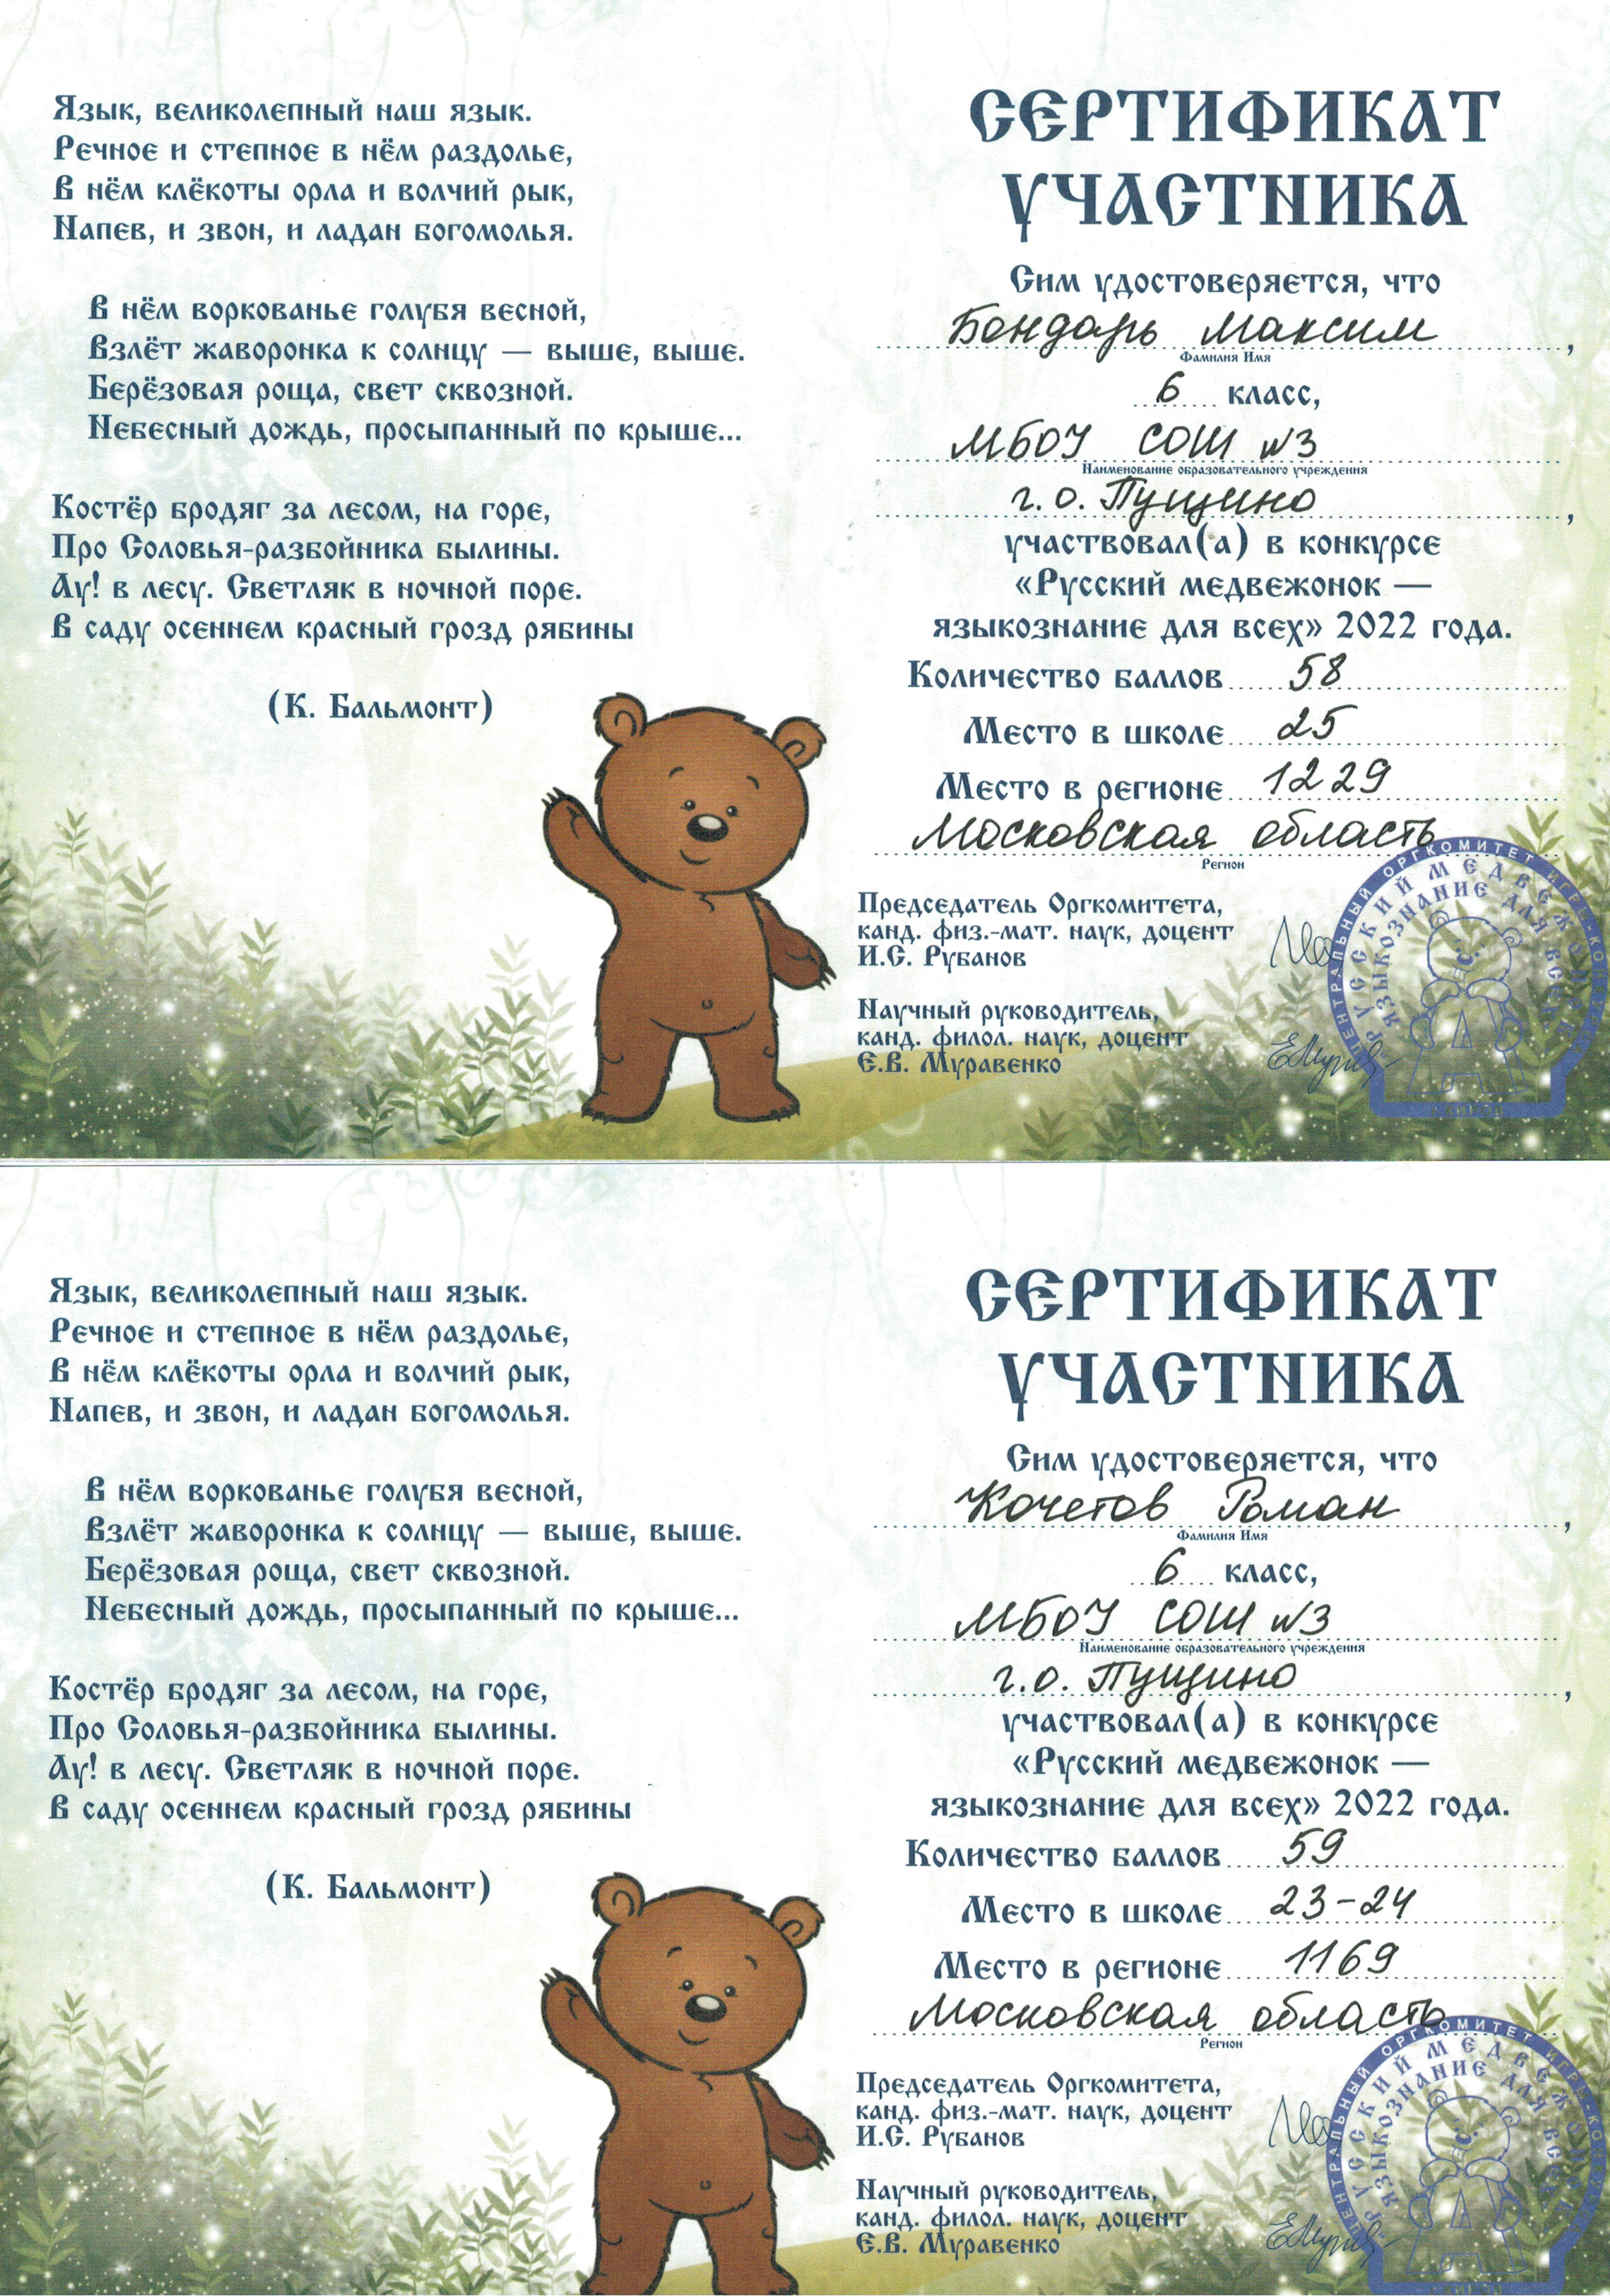 Язык, великолепный наш язык.
Речное и степное в нём раздолье,
В нём клёкоты орла и волчий рык,
Напев, и звон, и ладан богомолья.
В нём воркованье голубя весной,
Взлёт жаворонка к солнцу — выше, выше.
Берёзовая роща, свет сквозной.
Небесный дождь, просыпанный по крыше...
Костёр бродяг за лесом, на горе,
Про Соловья-разбойника былины.
Ау! в лесу. Светляк в ночной поре.
В саду осеннем красный грозд рябины
(К. Бальмонт)
СЕРТИФИКАТ
УЧАСТНИКА
Сим удостоверяется, что
Бондарь Максим,
Фамилия Имя
6 класс,
МБОУ СОШ №3
Наименование образовательного учреждения
г.о. Пущино,
участвовал(а) в конкурсе
«Русский медвежонок —
языкознание для всех» 2022 года.
Количество баллов 58
Место в школе 25
Место в регионе 1229
Московская область
Регион
Председатель Оргкомитета,
канд. физ.-мат. наук, доцент
И.С. Рубанов
Научный руководитель,
канд. филол. наук, доцент
Е.В. Муравенко
ЦЕНТРАЛЬНЫЙ ОРГКОМИТЕТ
РУССКИЙ МЕДВЕЖОНОК
ЯЗЫКОЗНАНИЕ ДЛЯ ВСЕХ
Язык, великолепный наш язык.
Речное и степное в нём раздолье,
В нём клёкоты орла и волчий рык,
Напев, и звон, и ладан богомолья.
В нём воркованье голубя весной,
Взлёт жаворонка к солнцу — выше, выше.
Берёзовая роща, свет сквозной.
Небесный дождь, просыпанный по крыше...
Костёр бродяг за лесом, на горе,
Про Соловья-разбойника былины.
Ау! в лесу. Светляк в ночной поре.
В саду осеннем красный грозд рябины
(К. Бальмонт)
СЕРТИФИКАТ
УЧАСТНИКА
Сим удостоверяется, что
Кочетов Роман,
Фамилия Имя
6 класс,
МБОУ СОШ №3
Наименование образовательного учреждения
г.о. Пущино,
участвовал(а) в конкурсе
«Русский медвежонок —
языкознание для всех» 2022 года.
Количество баллов 59
Место в школе 23-24
Место в регионе 1169
Московская область
Регион
Председатель Оргкомитета,
канд. физ.-мат. наук, доцент
И.С. Рубанов
Научный руководитель,
канд. филол. наук, доцент
Е.В. Муравенко
ЦЕНТРАЛЬНЫЙ ОРГКОМИТЕТ
РУССКИЙ МЕДВЕЖОНОК
ЯЗЫКОЗНАНИЕ ДЛЯ ВСЕХ